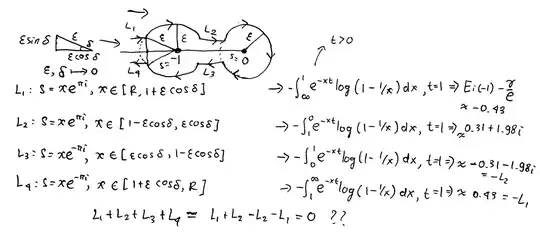 t>0
L₁ ε ε L₂ ε
εsinδ ε δ
εcosδ
ε, δ → 0
L₄ s=-1 L₃ s=0
L₁: s=xe^{πi}, x∈[R,1+εcosδ] → -∫_∞^1 e^{-xt} log(1-1/x)dx, t=1 ⇒ Ei(-1) - γ/e
≈ -0.43
L₂: s=xe^{πi}, x∈[1-εcosδ, εcosδ] → -∫_1^0 e^{-xt} log(1-1/x)dx, t=1 ⇒ ≈ 0.31+1.98i
L₃: s=xe^{-πi}, x∈[εcosδ, 1-εcosδ] → -∫_0^1 e^{-xt} log(1-1/x)dx, t=1 ⇒ ≈ -0.31-1.98i
= -L₂
L₄: s=xe^{-πi}, x∈[1+εcosδ, R] → -∫_1^∞ e^{-xt} log(1-1/x)dx, t=1 ⇒ ≈ 0.43 = -L₁
L₁+L₂+L₃+L₄ ≃ L₁+L₂-L₂-L₁ = 0 ??